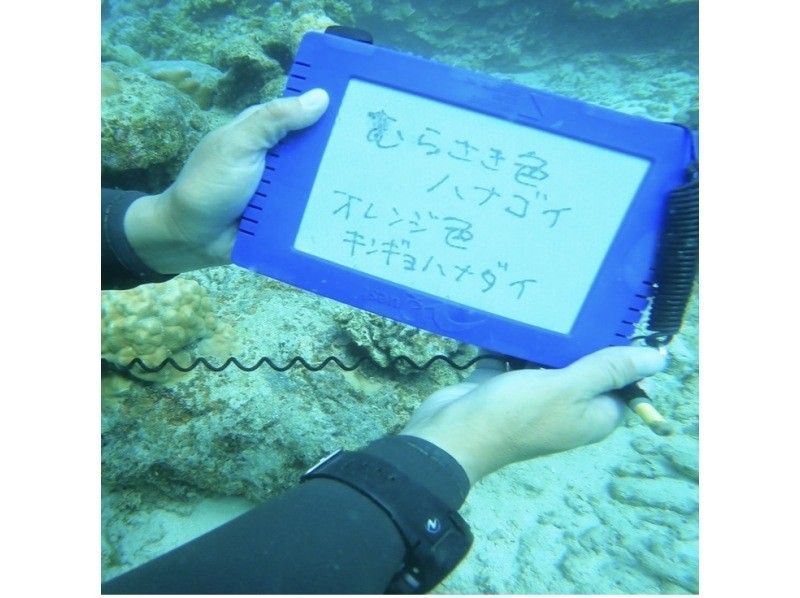 むらさき色
ハナゴイ
オレンジ色
キンギョハナダイ